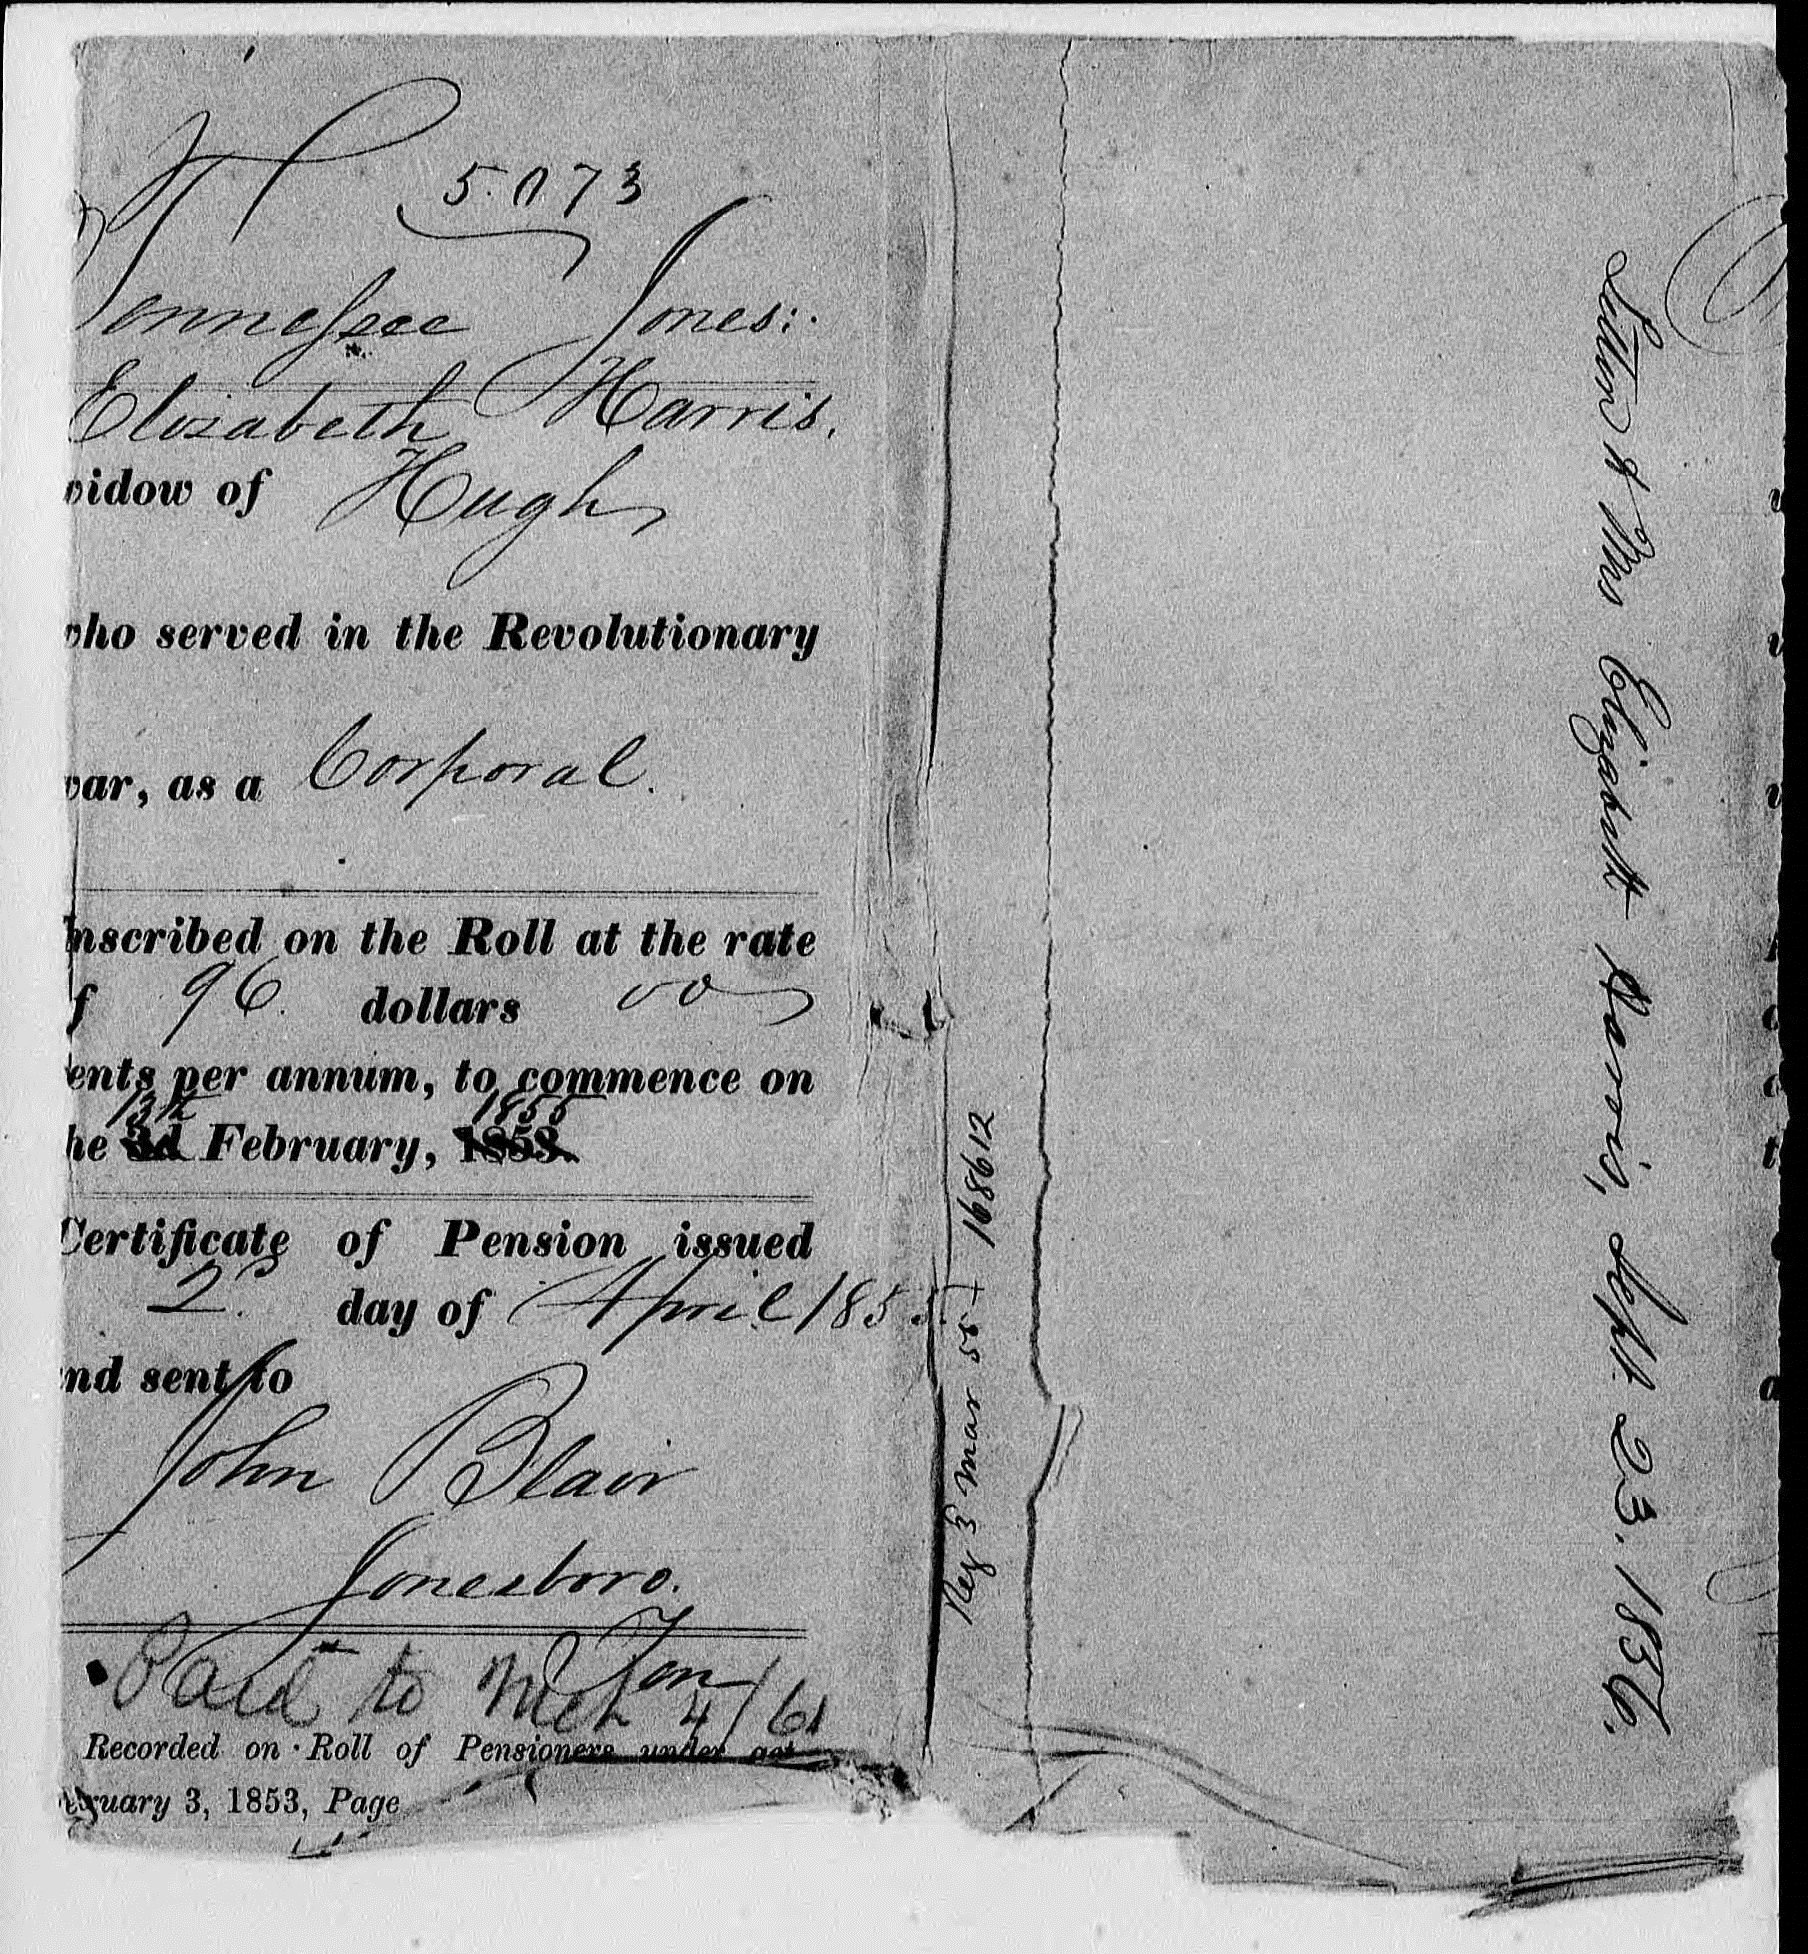 5.073
Tennessee Jones:
Elizabeth Harris.
widow of Hugh
who served in the Revolutionary
war, as a Corporal.
Inscribed on the Roll at the rate
of 96 dollars 00
cents per annum, to commence on
13th 1855
the 3d February, 1853.
Certificate of Pension issued
2 day of April 1855
and sent to
John Blair
Jonesboro.
Ten
Paid to Mch 4/61
Recorded on Roll of Pensioners under act
February 3, 1853, Page
Reg 3 Mar 55 + 168612
Letter to Mrs Elizabeth Harris, Sept. 23. 1836.